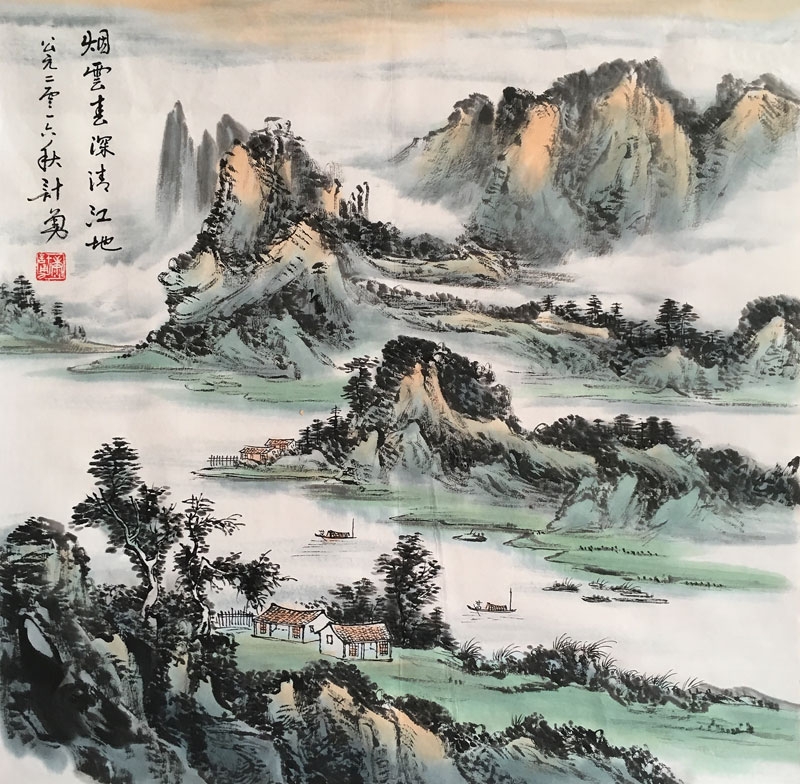 烟雲春深清江地
公元二零一六秋计勇